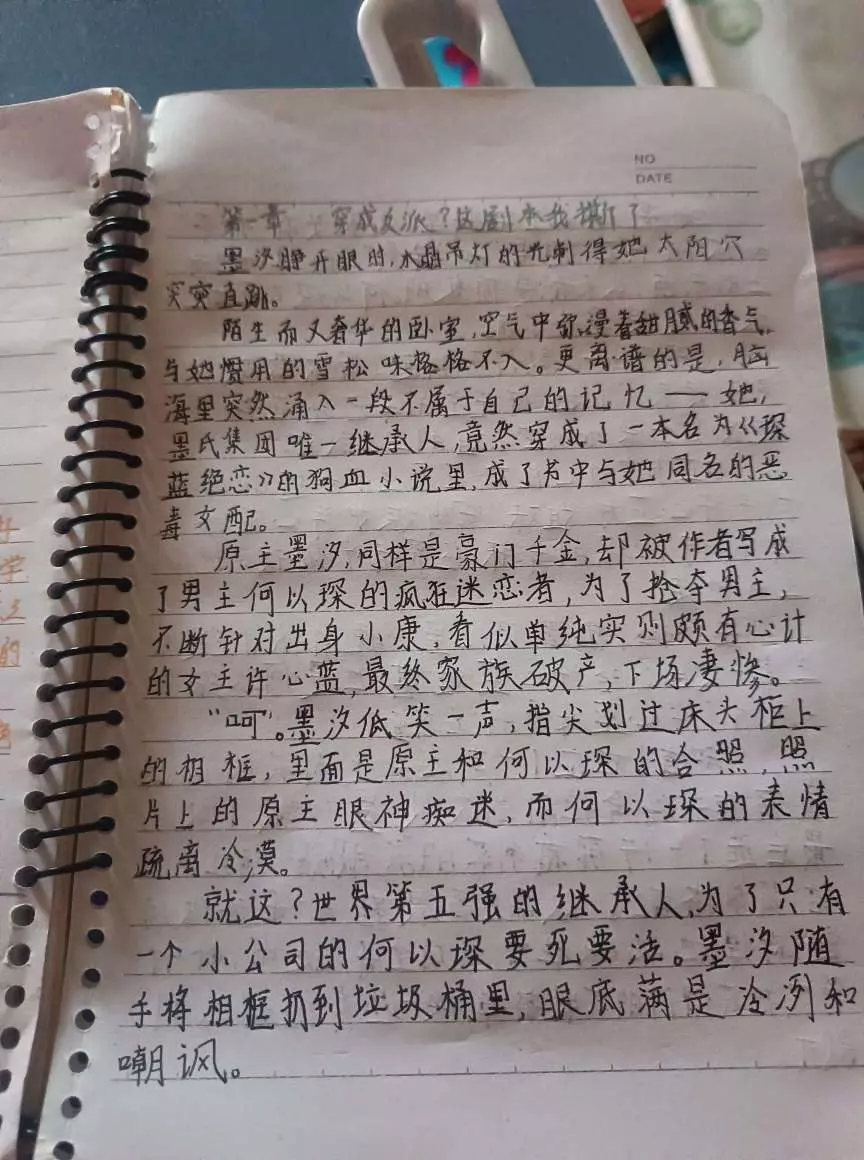 NO
DATE
第一章 穿成反派?这剧本我撕了
墨汐睁开眼时,水晶吊灯的光刺得她太阳穴
突突直跳。
陌生而又奢华的卧室,空气中弥漫着甜腻的香气,
与她惯用的雪松味格格不入。更离谱的是,脑
海里突然涌入一段不属于自己的记忆——她,
墨氏集团唯一继承人,竟然穿成了一本名为《琛
蓝绝恋》的狗血小说里,成了书中与她同名的恶
毒女配。
原主墨汐,同样是豪门千金,却被作者写成
了男主何以琛的疯狂迷恋者,为了抢夺男主,
不断针对出身小康,看似单纯实则颇有心计
的女主许心蓝,最终家族破产,下场凄惨。
“呵”。墨汐低笑一声,指尖划过床头柜上
的相框,里面是原主和何以琛的合照,照
片上的原主眼神痴迷,而何以琛的表情
疏离冷漠。
就这?世界第五强的继承人,为了只有
一个小公司的何以琛要死要活。墨汐随
手将相框扔到垃圾桶里,眼底满是冷冽和
嘲讽。
好
学
上
的